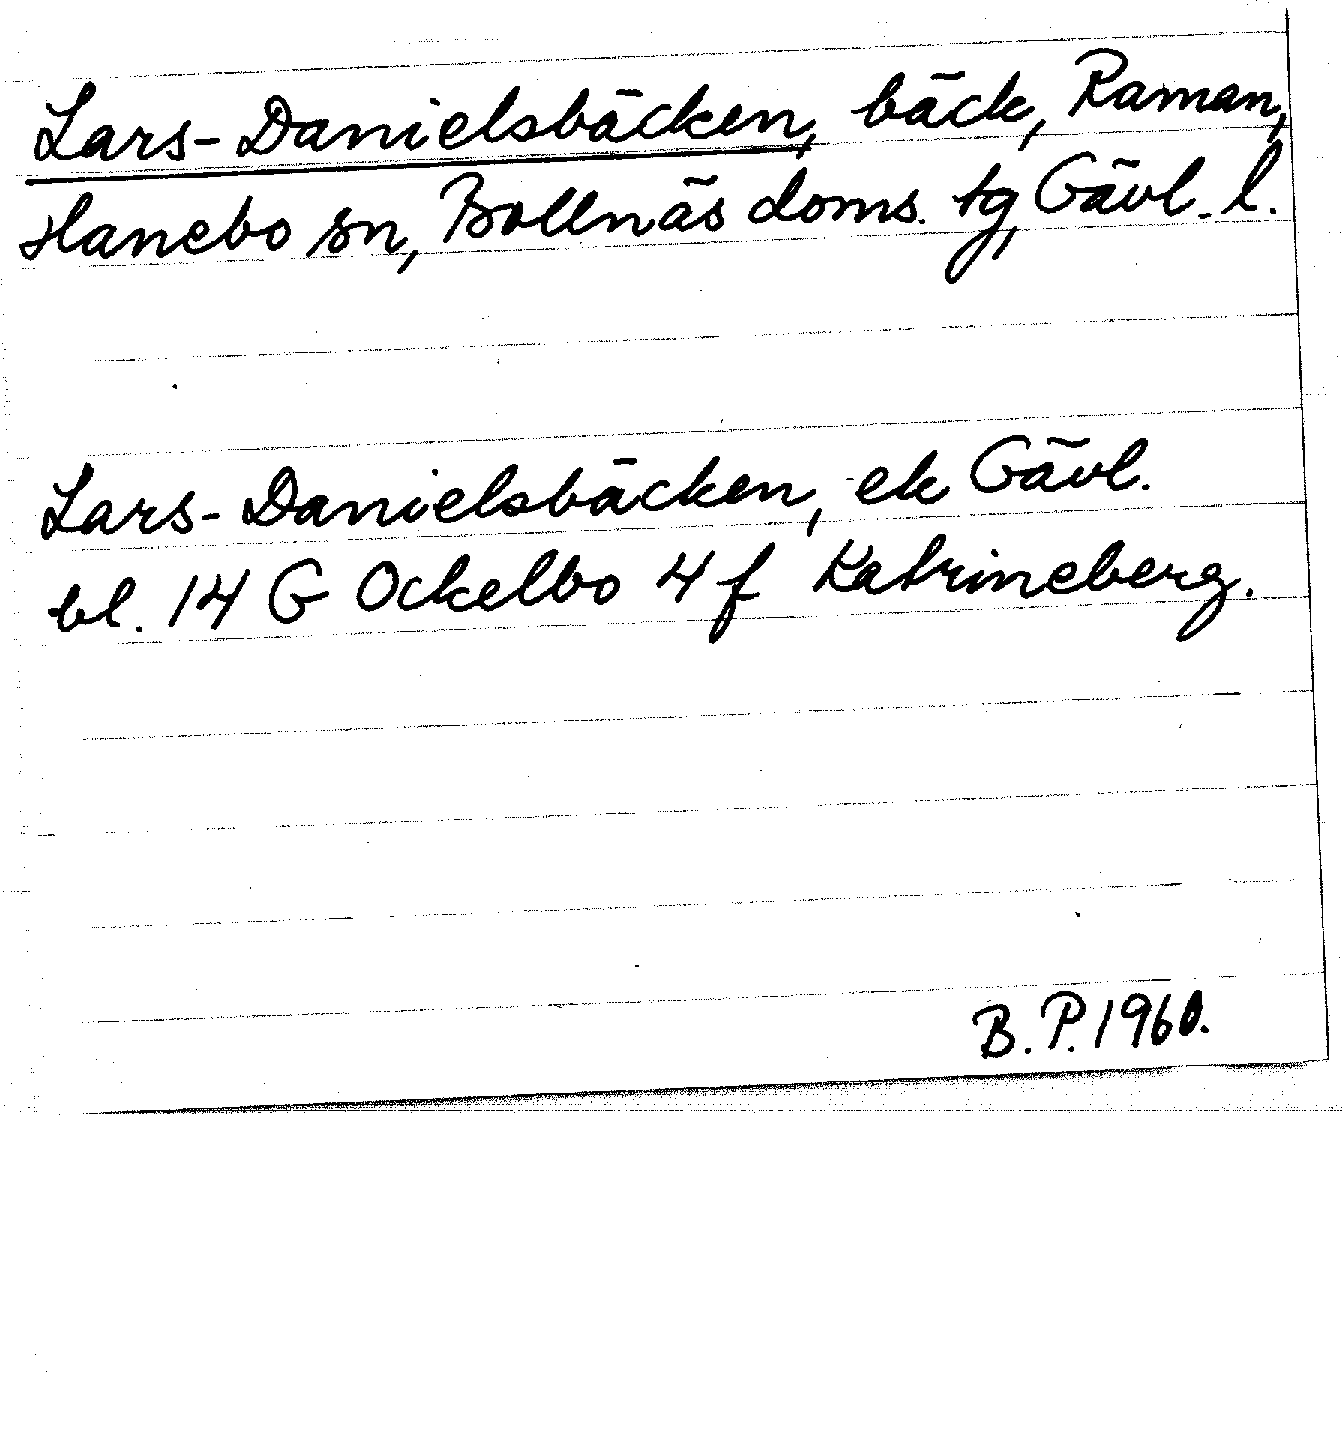 Lars-Danielsbäcken, bäck, Raman,
Hanebo sn, Bollnäs doms. tg, Gävl. l.
Lars-Danielsbäcken, ek Gävl.
bl. 14 G Ockelbo 4 f Katrineberg.
B.P. 1960.